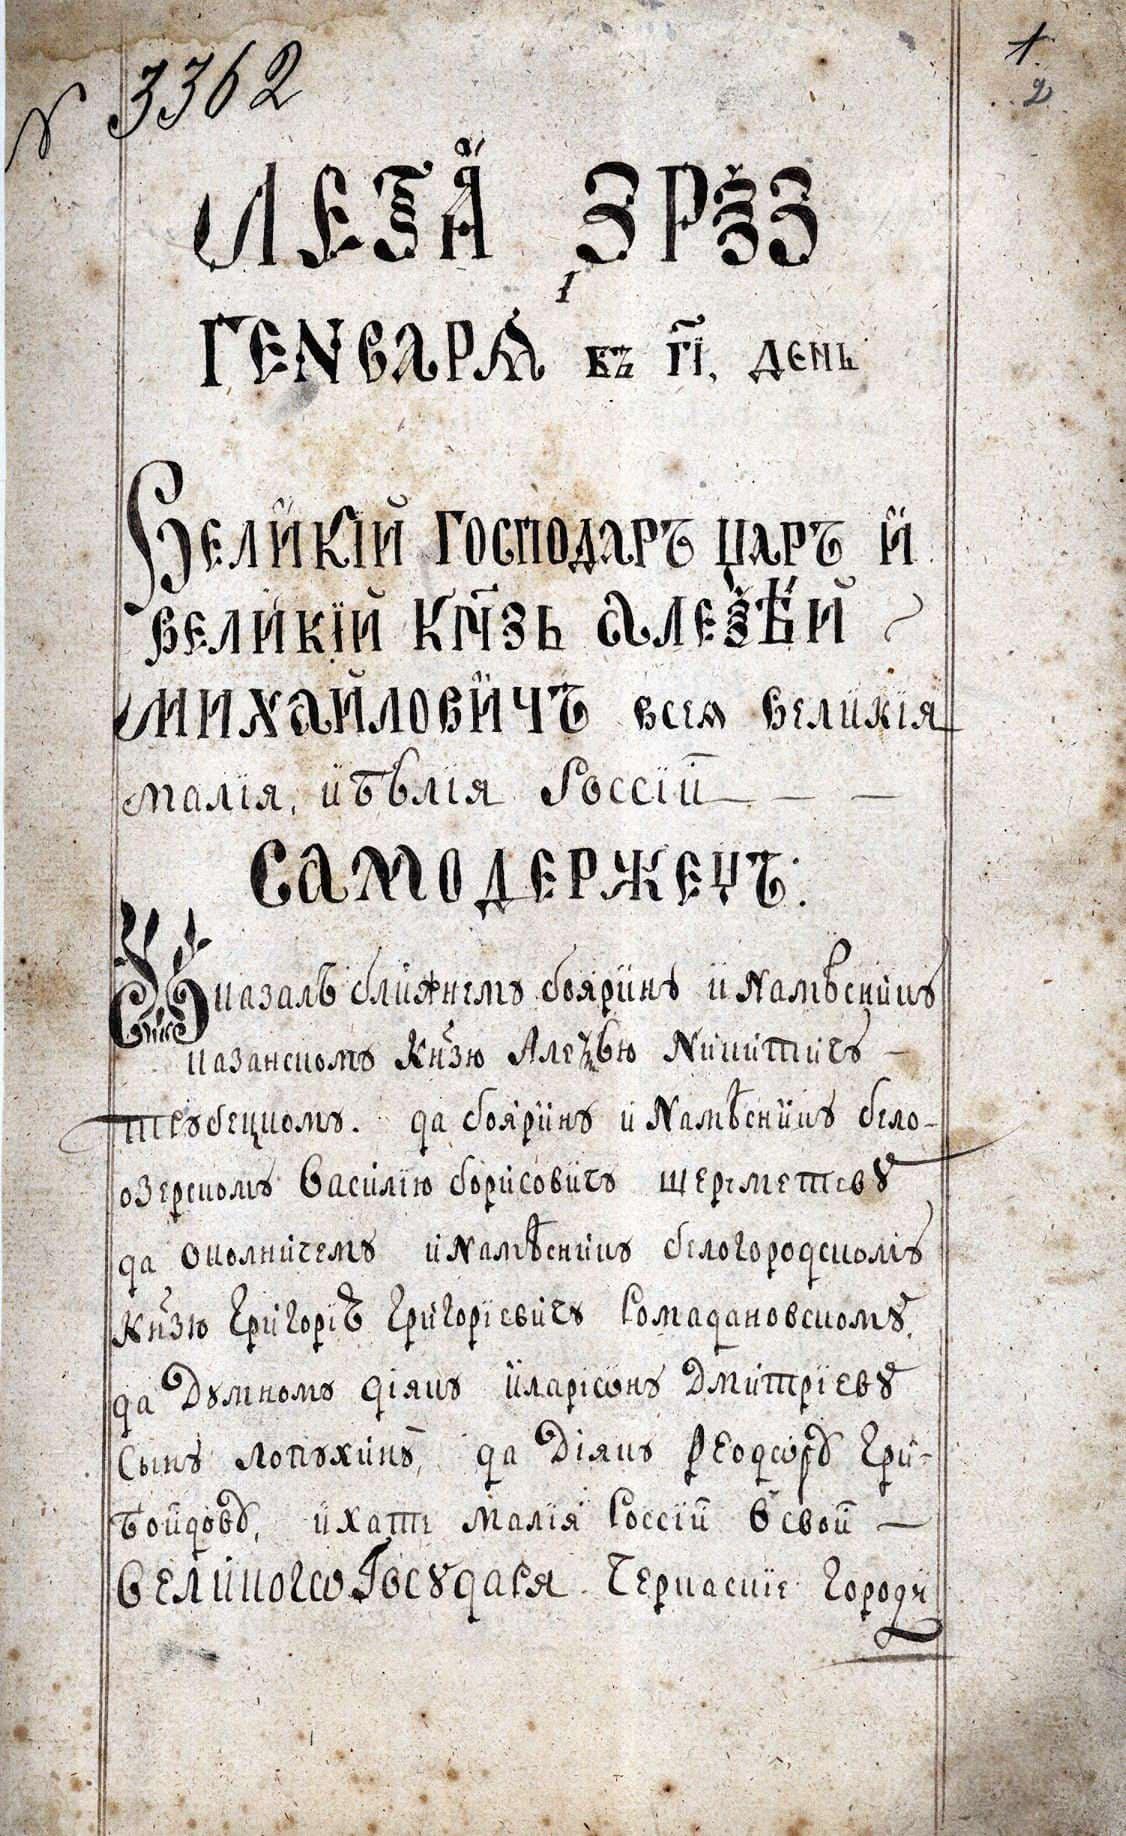 № 3362
1.
2
ЛЕТА ЗРѮЗ
1
ГЕНВАРѦ въ г҃і, день
Великій господаръ царъ и
великій кн҃зь Алеѯѣй
Михайловичъ всея великїя
малїя, и бѣлїя Россїй
самодержецъ:
Указалъ ближнемꙋ бояринꙋ и Намѣсникꙋ
казанскомꙋ Кн҃зю Алеѯѣю Никитичꙋ
трꙋбецкомꙋ. да бояринꙋ и Намѣсникꙋ бело-
озерскомꙋ Василїю борисовичꙋ шереметевꙋ
да околничемꙋ и Намѣсникꙋ белогородскомꙋ
Кн҃зю Григорїю Григорїевичꙋ Ромадановскомꙋ.
да Дꙋмномꙋ діякꙋ Иларіѡнꙋ Дмитрїевꙋ
Сынꙋ лопꙋхинꙋ, да Діякꙋ Ѳеодѡрꙋ Гри-
боѣдовꙋ, ихати малїя Россїй в свои
великогѡ Госꙋдаря Черкаскіе городи